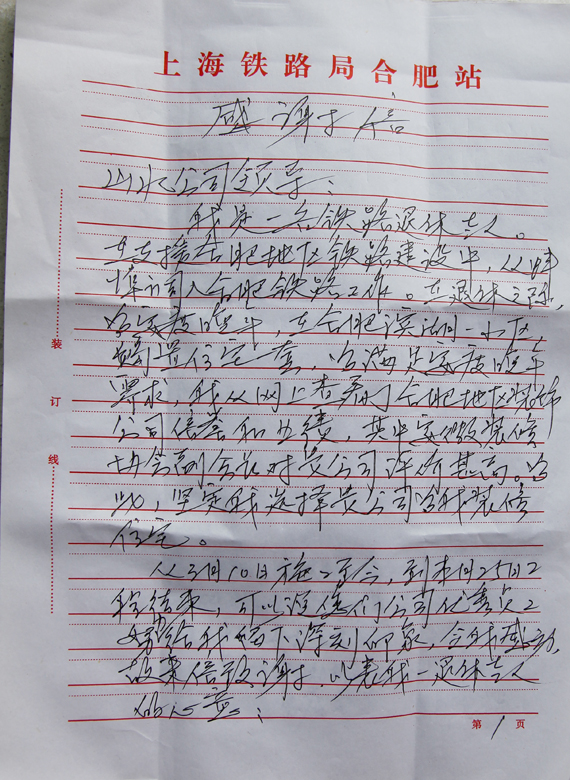 上海铁路局合肥站
感谢信
山水公司领导：
我是一名铁路退休老人。
在支援合肥地区铁路建设中，从蚌
埠调入合肥铁路工作。在退休之际，
为安度晚年，在合肥滨湖一小区，
购置住宅一套，为满足安度晚年
要求，我从网上查看了合肥地区装饰
公司信誉和业绩，其中安徽装修
协会副会长对贵公司评价甚高。为
此，坚实我选择贵公司为我装修
住宅。
从3月10日施工至今，到本月25日工
程结束，可以说你们公司优秀员工
好给我留下深刻印象，令我感动，
故来信致谢，以表我一退休老人
的心意：
装
订
线
第 1 页